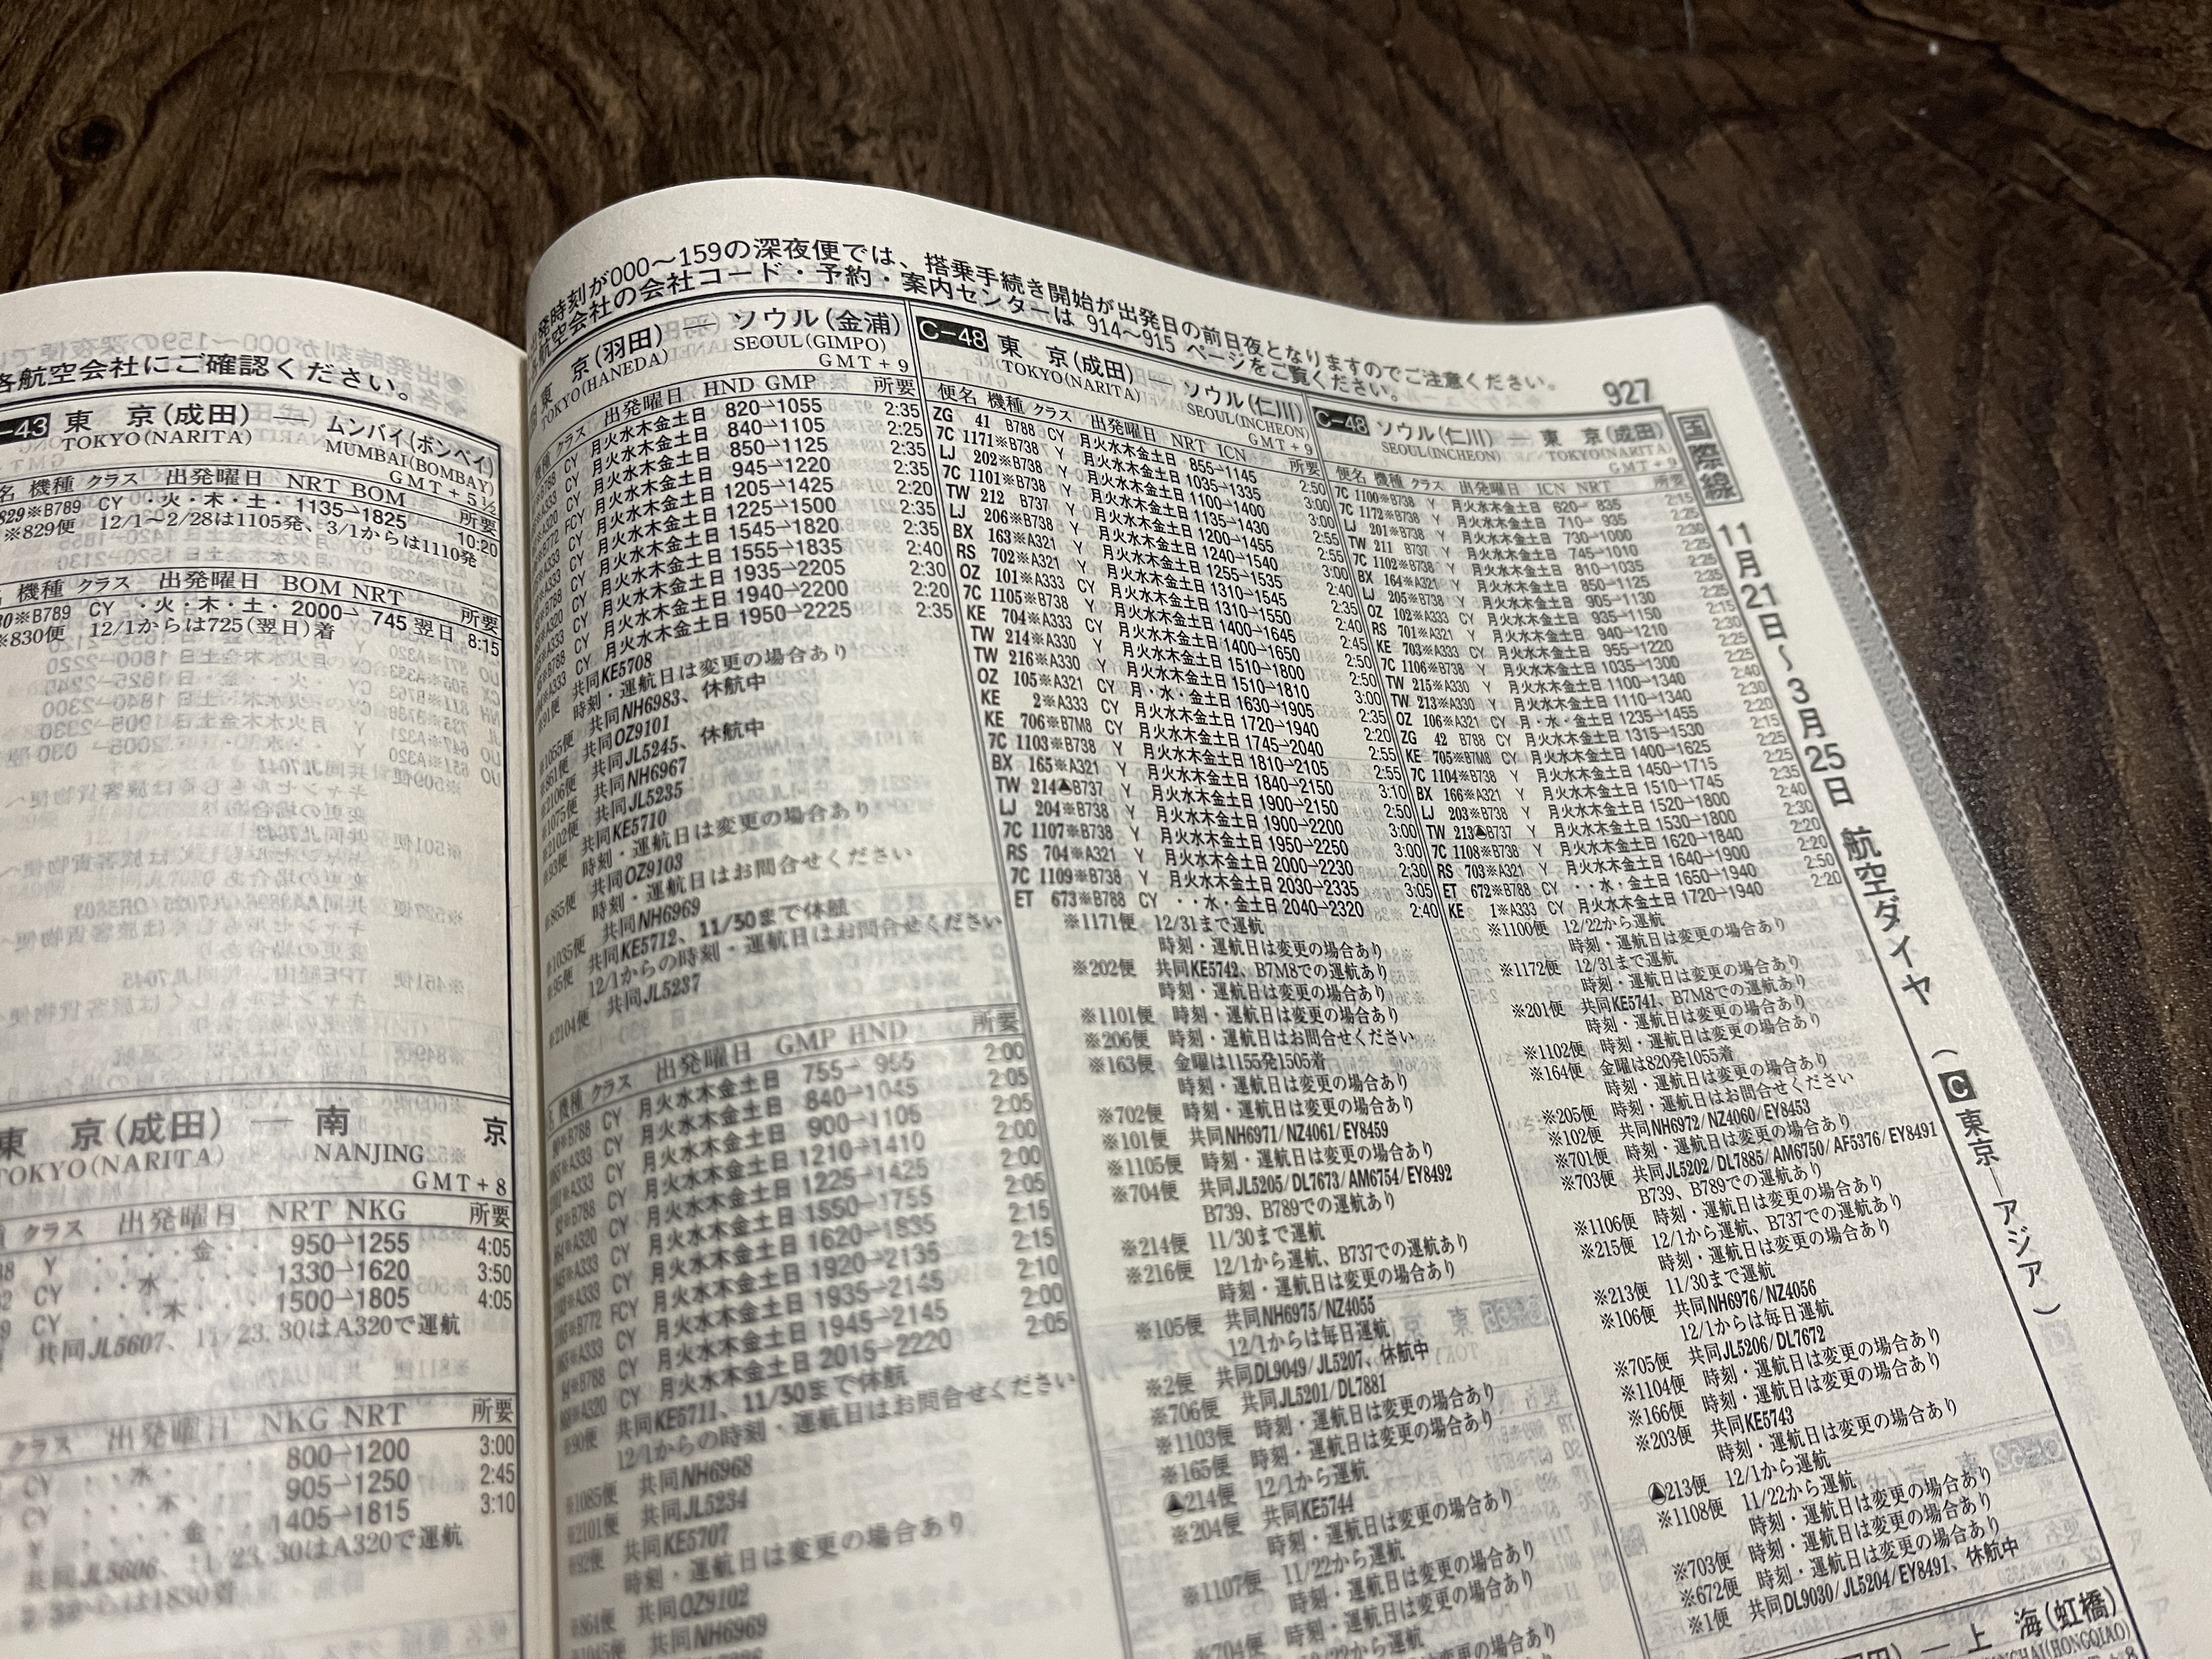 各航空会社にご確認ください。
-43 東 京(成田) ― ムンバイ(ボンベイ)
TOKYO(NARITA) MUMBAI(BOMBAY)
GMT+5½
名 機種 クラス 出発曜日 NRT BOM 所要
829※B789 CY ・火・木・土・ 1135→1825 10:20
※829便 12/1～2/28は1105発、3/1からは1110発
機種 クラス 出発曜日 BOM NRT 所要
30※B789 CY ・火・木・土・ 2000→ 745 翌日 8:15
※830便 12/1からは725(翌日)着
東 京(成田) ― 南 京
TOKYO(NARITA) NANJING
GMT+8
クラス 出発曜日 NRT NKG 所要
Y ・・・・金・・ 950→1255 4:05
CY ・・水・・・・ 1330→1620 3:50
CY ・・・木・・・ 1500→1805 4:05
共同JL5607、11/23、30はA320で運航
クラス 出発曜日 NKG NRT 所要
CY ・・水・・・・ 800→1200 3:00
CY ・・・木・・・ 905→1250 2:45
Y ・・・・金・・ 1405→1815 3:10
共同JL5606、11/23、30はA320で運航
発時刻が000～159の深夜便では、搭乗手続き開始が出発日の前日夜となりますのでご注意ください。
航空会社の会社コード・予約・案内センターは 914～915 ページをご覧ください。
927
東 京(羽田) ― ソウル(金浦)
TOKYO(HANEDA) SEOUL(GIMPO)
GMT+9
クラス 出発曜日 HND GMP 所要
CY 月火水木金土日 820→1055 2:35
CY 月火水木金土日 840→1105 2:25
CY 月火水木金土日 850→1125 2:35
CY 月火水木金土日 945→1220 2:35
月火水木金土日 1205→1425 2:20
月火水木金土日 1225→1500 2:35
CY 月火水木金土日 1545→1820 2:35
CY 月火水木金土日 1555→1835 2:40
CY 月火水木金土日 1935→2205 2:30
CY 月火水木金土日 1940→2200 2:20
CY 月火水木金土日 1950→2225 2:35
共同KE5708
時刻・運航日は変更の場合あり
共同NH6983、休航中
共同OZ9101
共同JL5245、休航中
共同NH6967
共同JL5235
共同KE5710
時刻・運航日は変更の場合あり
共同OZ9103
時刻・運航日はお問合せください
共同NH6969
共同KE5712、11/30まで休航
12/1からの時刻・運航日はお問合せください
※2104便 共同JL5237
機種 クラス 出発曜日 GMP HND 所要
CY 月火水木金土日 755→ 955 2:00
CY 月火水木金土日 840→1045 2:05
CY 月火水木金土日 900→1105 2:05
CY 月火水木金土日 1210→1410 2:00
CY 月火水木金土日 1225→1425 2:00
CY 月火水木金土日 1550→1755 2:05
CY 月火水木金土日 1620→1835 2:15
CY 月火水木金土日 1920→2135 2:15
FCY 月火水木金土日 1935→2145 2:10
CY 月火水木金土日 1945→2145 2:00
CY 月火水木金土日 2015→2220 2:05
共同KE5711、11/30まで休航
12/1からの時刻・運航日はお問合せください
※1085便 共同NH6968
※2101便 共同JL5234
※92便 共同KE5707
時刻・運航日は変更の場合あり
※864便 共同OZ9102
共同NH6969
C-48 東 京(成田) ― ソウル(仁川)
TOKYO(NARITA) SEOUL(INCHEON)
GMT+9
便名 機種 クラス 出発曜日 NRT ICN 所要
ZG 41 B788 CY 月火水木金土日 855→1145 2:50
7C 1171※B738 Y 月火水木金土日 1035→1335 3:00
LJ 202※B738 Y 月火水木金土日 1100→1400 3:00
7C 1101※B738 Y 月火水木金土日 1135→1430 2:55
TW 212 B737 Y 月火水木金土日 1200→1455 2:55
LJ 206※B738 Y 月火水木金土日 1240→1540 3:00
BX 163※A321 Y 月火水木金土日 1255→1535 2:40
RS 702※A321 Y 月火水木金土日 1310→1545 2:35
OZ 101※A333 CY 月火水木金土日 1310→1550 2:40
7C 1105※B738 Y 月火水木金土日 1400→1645 2:45
KE 704※A333 CY 月火水木金土日 1400→1650 2:50
TW 214※A330 Y 月火水木金土日 1510→1800 2:50
TW 216※A330 Y 月火水木金土日 1510→1810 3:00
OZ 105※A321 CY 月・水・金土日 1630→1905 2:35
KE 2※A333 CY 月火水木金土日 1720→1940 2:20
KE 706※B7M8 CY 月火水木金土日 1745→2040 2:55
7C 1103※B738 Y 月火水木金土日 1810→2105 2:55
BX 165※A321 Y 月火水木金土日 1840→2150 3:10
TW 214▲B737 Y 月火水木金土日 1900→2150 2:50
LJ 204※B738 Y 月火水木金土日 1900→2200 3:00
7C 1107※B738 Y 月火水木金土日 1950→2250 3:00
RS 704※A321 Y 月火水木金土日 2000→2230 2:30
7C 1109※B738 Y 月火水木金土日 2030→2335 3:05
ET 673※B788 CY ・・水・金土日 2040→2320 2:40
※1171便 12/31まで運航
時刻・運航日は変更の場合あり
※202便 共同KE5742、B7M8での運航あり
時刻・運航日は変更の場合あり
※1101便 時刻・運航日は変更の場合あり
※206便 時刻・運航日はお問合せください
※163便 金曜は1155発1505着
時刻・運航日は変更の場合あり
※702便 時刻・運航日は変更の場合あり
※101便 共同NH6971/NZ4061/EY8459
※1105便 時刻・運航日は変更の場合あり
※704便 共同JL5205/DL7673/AM6754/EY8492
B739、B789での運航あり
※214便 11/30まで運航
※216便 12/1から運航、B737での運航あり
時刻・運航日は変更の場合あり
※105便 共同NH6975/NZ4055
12/1からは毎日運航
※2便 共同DL9049/JL5207、休航中
※706便 共同JL5201/DL7881
※1103便 時刻・運航日は変更の場合あり
※165便 時刻・運航日は変更の場合あり
▲214便 12/1から運航
※204便 共同KE5744
時刻・運航日は変更の場合あり
※1107便 11/22から運航
時刻・運航日は変更の場合あり
※704便 時刻・運航日は変更の場合あり
C-48 ソウル(仁川) ― 東 京(成田)
SEOUL(INCHEON) TOKYO(NARITA)
GMT+9
便名 機種 クラス 出発曜日 ICN NRT 所要
7C 1100※B738 Y 月火水木金土日 620→ 835 2:15
7C 1172※B738 Y 月火水木金土日 710→ 935 2:25
LJ 201※B738 Y 月火水木金土日 730→1000 2:30
TW 211 B737 Y 月火水木金土日 745→1010 2:25
7C 1102※B738 Y 月火水木金土日 810→1035 2:25
BX 164※A321 Y 月火水木金土日 850→1125 2:35
LJ 205※B738 Y 月火水木金土日 905→1130 2:25
OZ 102※A333 CY 月火水木金土日 935→1150 2:15
RS 701※A321 Y 月火水木金土日 940→1210 2:30
KE 703※A333 CY 月火水木金土日 955→1220 2:25
7C 1106※B738 Y 月火水木金土日 1035→1300 2:25
TW 215※A330 Y 月火水木金土日 1100→1340 2:40
TW 213※A330 Y 月火水木金土日 1110→1340 2:30
OZ 106※A321 CY 月・水・金土日 1235→1455 2:20
ZG 42 B788 CY 月火水木金土日 1315→1530 2:15
KE 705※B7M8 CY 月火水木金土日 1400→1625 2:25
7C 1104※B738 Y 月火水木金土日 1450→1715 2:25
BX 166※A321 Y 月火水木金土日 1510→1745 2:35
LJ 203※B738 Y 月火水木金土日 1520→1800 2:40
TW 213▲B737 Y 月火水木金土日 1530→1800 2:30
7C 1108※B738 Y 月火水木金土日 1620→1840 2:20
RS 703※A321 Y 月火水木金土日 1640→1900 2:20
ET 672※B788 CY ・・水・金土日 1650→1940 2:50
KE 1※A333 CY 月火水木金土日 1720→1940 2:20
※1100便 12/22から運航
時刻・運航日は変更の場合あり
※1172便 12/31まで運航
時刻・運航日は変更の場合あり
※201便 共同KE5741、B7M8での運航あり
時刻・運航日は変更の場合あり
※1102便 時刻・運航日は変更の場合あり
※164便 金曜は820発1055着
時刻・運航日は変更の場合あり
※205便 時刻・運航日はお問合せください
※102便 共同NH6972/NZ4060/EY8453
※701便 時刻・運航日は変更の場合あり
※703便 共同JL5202/DL7885/AM6750/AF5376/EY8491
B739、B789での運航あり
※1106便 時刻・運航日は変更の場合あり
※215便 12/1から運航、B737での運航あり
時刻・運航日は変更の場合あり
※213便 11/30まで運航
※106便 共同NH6976/NZ4056
12/1からは毎日運航
※705便 共同JL5206/DL7672
※1104便 時刻・運航日は変更の場合あり
※166便 時刻・運航日は変更の場合あり
※203便 共同KE5743
時刻・運航日は変更の場合あり
▲213便 12/1から運航
※1108便 11/22から運航
時刻・運航日は変更の場合あり
※703便 時刻・運航日は変更の場合あり
※672便 時刻・運航日は変更の場合あり
※1便 共同DL9030/JL5204/EY8491、休航中
― 上 海(虹橋)
国際線 11月21日～3月25日 航空ダイヤ (C 東京―アジア)